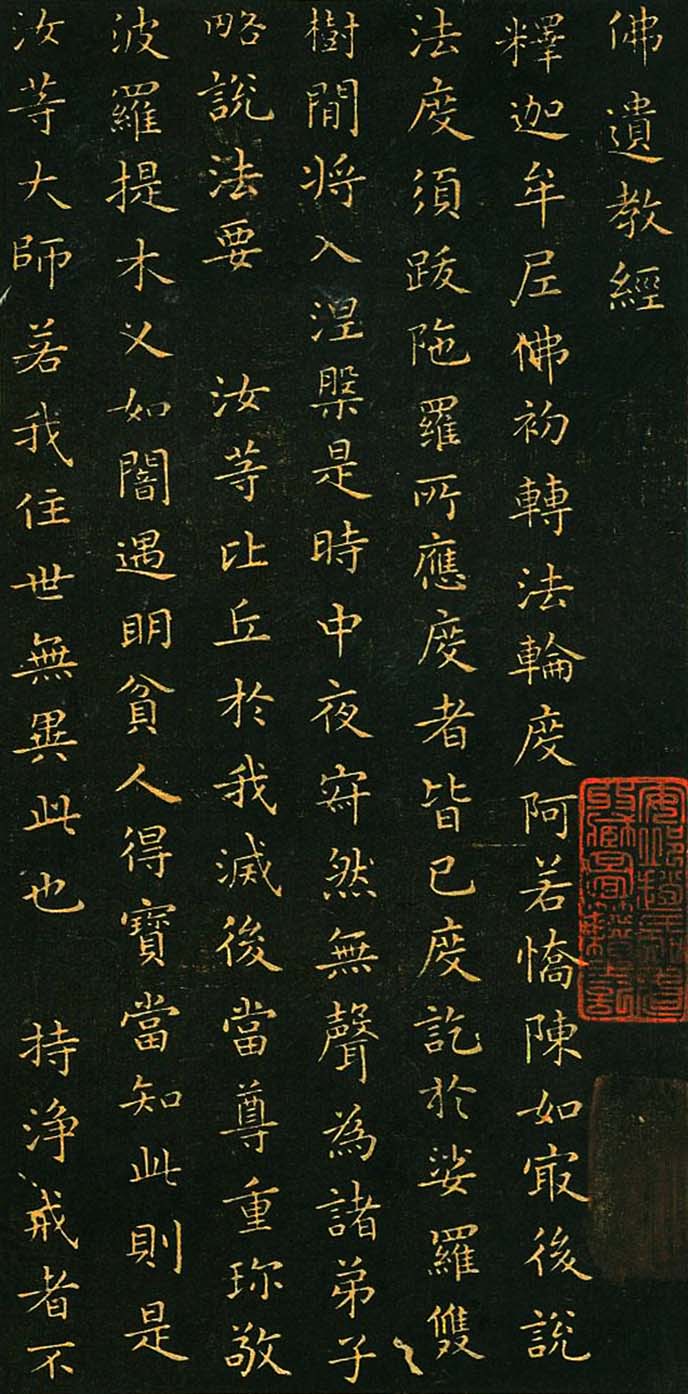 佛遺教經
釋迦牟尼佛初轉法輪度阿若憍陳如㝡後說
法度須跋陁羅所應度者皆已度訖於娑羅雙
樹間將入涅槃是時中夜寂然無聲為諸弟子
略說法要　汝等比丘於我滅後當尊重珎敬
波羅提木叉如闇遇明貧人得寶當知此則是
汝等大師若我住世無異此也　持淨戒者不